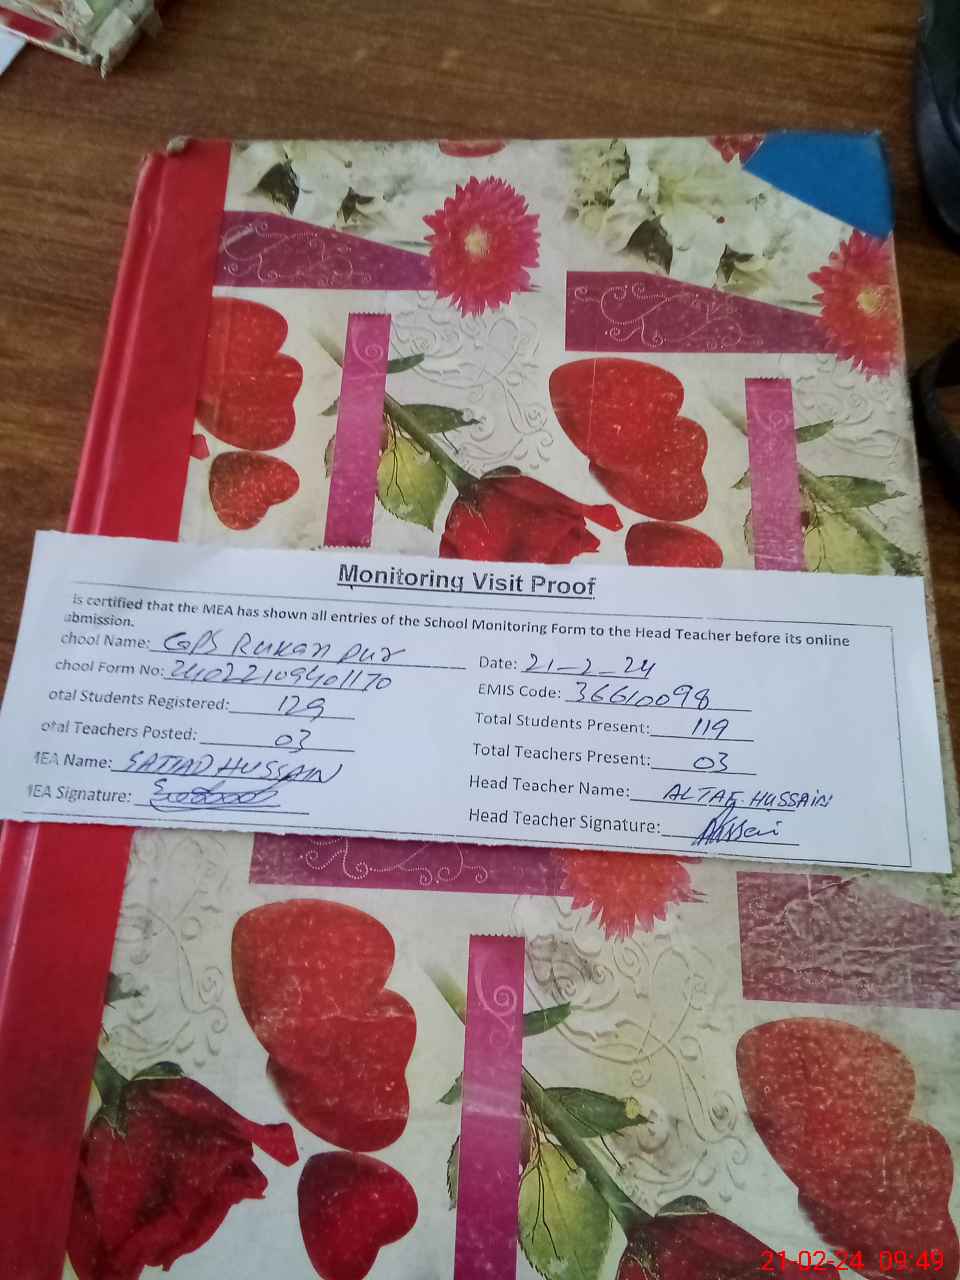 Monitoring Visit Proof
is certified that the MEA has shown all entries of the School Monitoring Form to the Head Teacher before its online
ubmission.
chool Name: GPS Rukan pur Date: 21-2-24
chool Form No: 24022109401170 EMIS Code: 36610098
otal Students Registered: 129 Total Students Present: 119
otal Teachers Posted: 03 Total Teachers Present: 03
MEA Name: SAJJAD HUSSAIN Head Teacher Name: ALTAF HUSSAIN
MEA Signature: Head Teacher Signature:
21-02-24 09:49